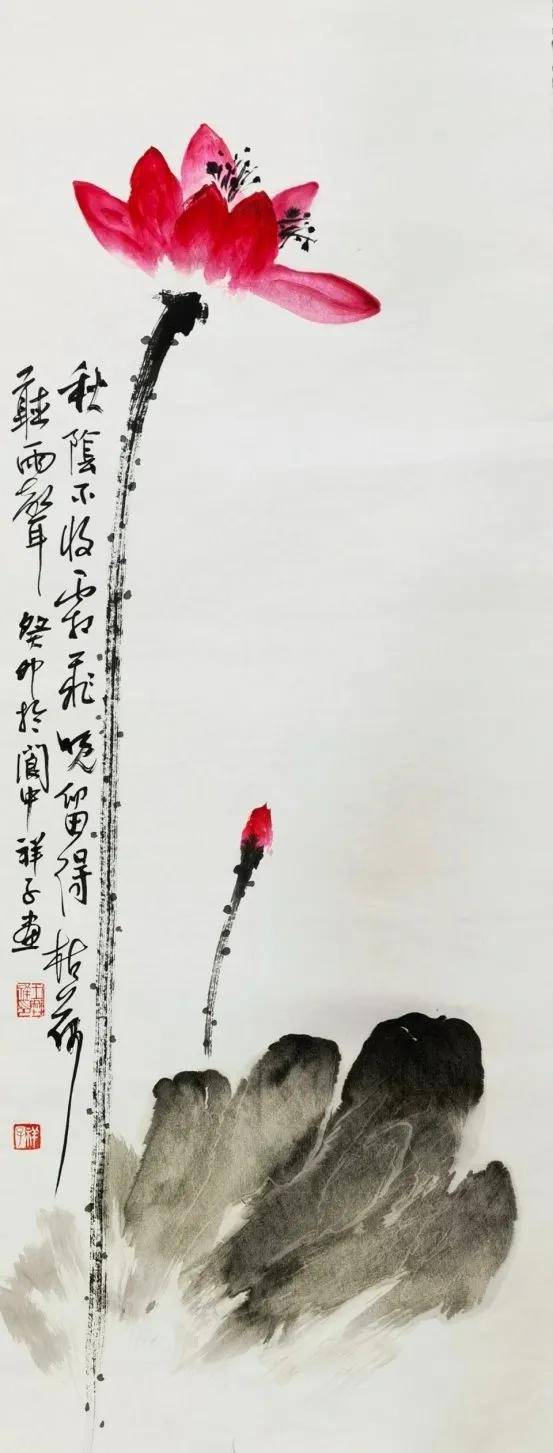 秋陰不收霜飛晚留得枯荷
聽雨聲 癸卯於閬中祥子畫
祥子